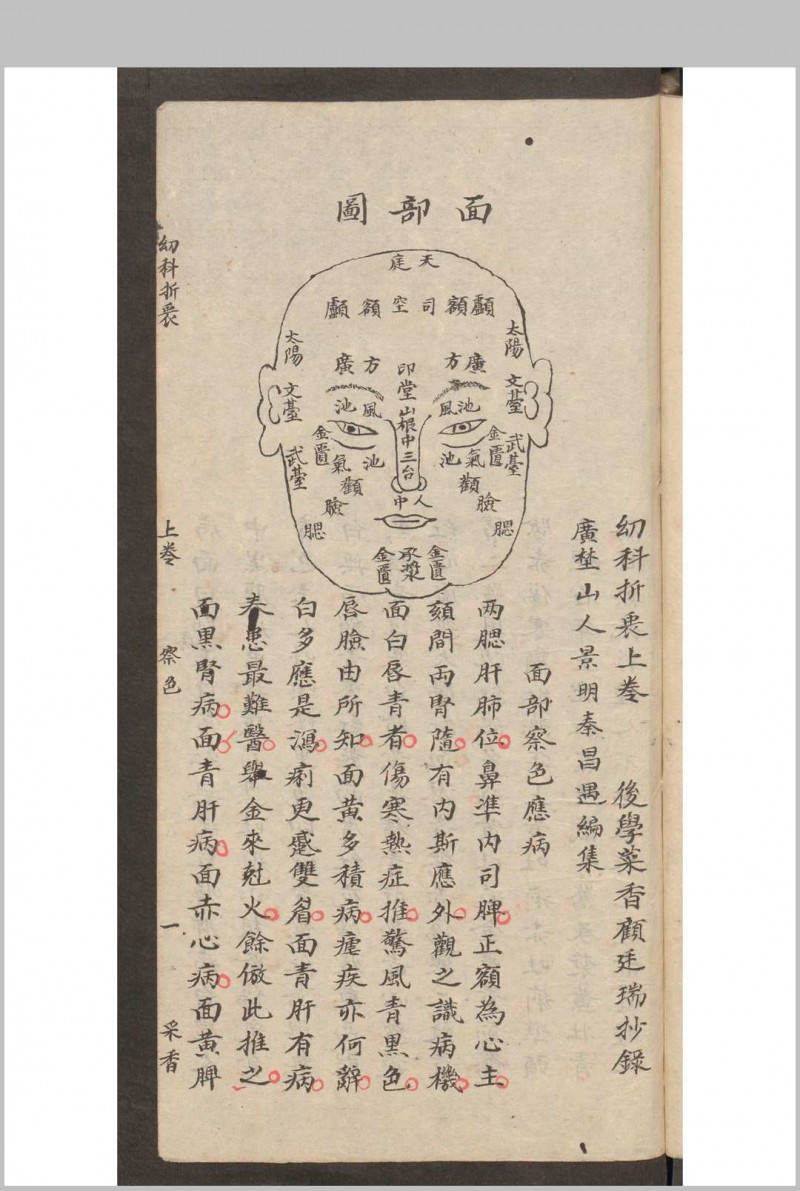 幼科折衷上卷　後學菜香顧廷瑞抄錄
廣埜山人景明秦昌遇編集
面部察色應病
两腮肝肺位鼻準内司脾正額為心主
頦間両腎隨有内斯應外觀之識病機
面白唇青者傷寒熱症推驚風青黒色
唇臉由所知面黄多積病瘧疾亦何辭
白多應是瀉痢更蹙雙眉面青肝有病
春患最難醫舉金來尅火餘倣此推之
面黒腎病面青肝病面赤心病面黄脾
面部圖
天庭
顱額司空額顱
太陽
太陽
方廣
方廣
印堂
文臺
文臺
風池
風池
山根
中三台
金匱
金匱
武臺
武臺
氣池
氣池
顴
顴
臉
臉
人中
腮
腮
金匱
承漿
金匱
幼科折衷
上卷
察色
一
采香